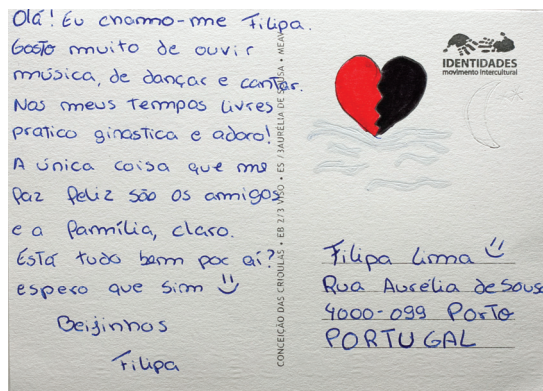 Olá! Eu chamo-me Filipa.
Gosto muito de ouvir
música, de dançar e cantar.
Nos meus tempos livres
pratico ginastica e adoro!
A única coisa que me
faz feliz são os amigos
e a família, claro.
Está tudo bem por aí?
espero que sim
Beijinhos
Filipa
CONCEIÇÃO DAS CRIOULAS • EB 2/3 VISO • ES /3AURÉLIA DE SOUSA • MEAV
IDENTIDADES
movimento intercultural
Filipa Lima
Rua Aurélia de Sousa
4000-099 Porto
PORTUGAL